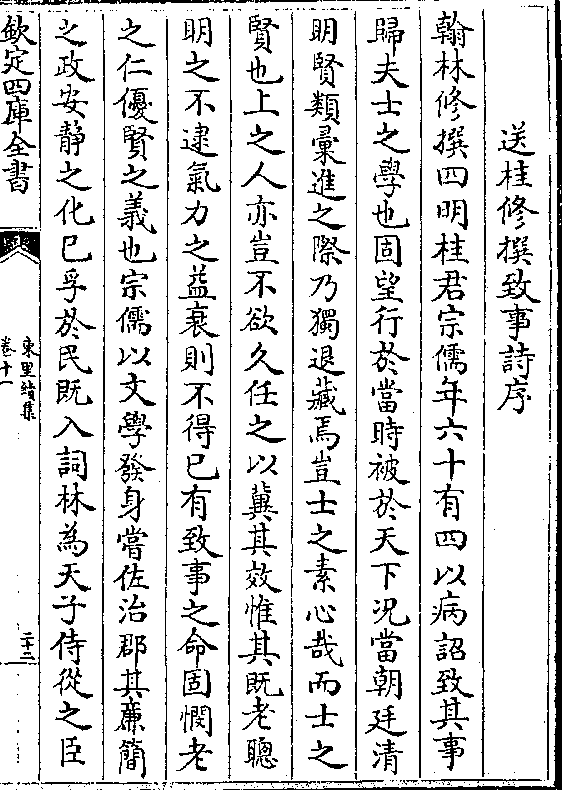 送桂修撰致事詩序
翰林修撰四明桂君宗儒年六十有四以病詔致其事
歸夫士之學也固望行於當時被於天下况當朝廷清
明賢類彙進之際乃獨退藏焉豈士之素心哉而士之
賢也上之人亦豈不欲久任之以冀其效惟其既老聰
明之不逮氣力之益衰則不得已有致事之命固憫老
之仁優賢之義也宗儒以文學發身嘗佐治郡其廉簡
之政安静之化已孚於民既入詞林為天子侍從之臣
欽定四庫全書
東里續集
卷十一
二十二